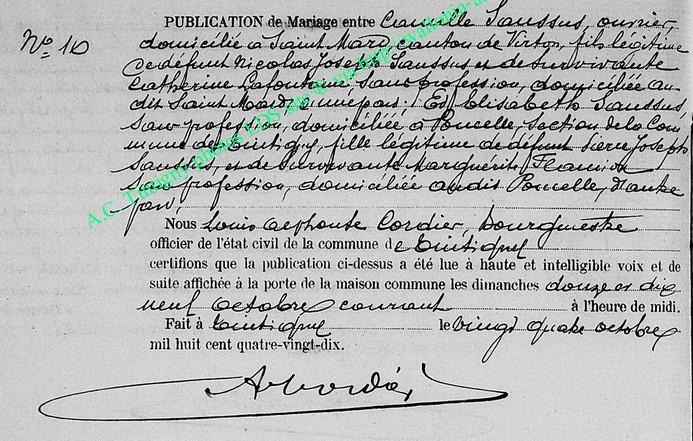 N° 10
PUBLICATION de Mariage entre Camille Saussus, ouvrier,
domiciliée à Saint Mard canton de Virton, fils légitime
de défunt Nicolas Joseph Saussus et de survivante
Catherine Lafontaine sans profession, domiciliée au
dit Saint Mard d'une part; Et Elisabeth Saussus,
sans profession, domiciliée à Poncelle, section de la Com
mune de Tintigny, fille légitime de défunt Pierre Joseph
Saussus, et de survivante Marguerite Flamion
sans profession, domiciliée audit Poncelle, d'autre
part.
Nous Louis Alphonse Cordier, Bourgmestre
officier de l'état civil de la commune de Tintigny
certifions que la publication ci-dessus a été lue à haute et intelligible voix et de
suite affichée à la porte de la maison commune les dimanches douze et dix
neuf octobre courant à l'heure de midi.
Fait à Tintigny le vingt quatre octobre
mil huit cent quatre-vingt-dix.
A.C. Tintigny photos